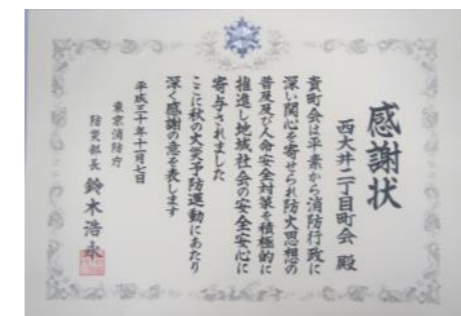 感謝状
西大井二丁目町会 殿
貴町会は平素から消防行政に
深い関心を寄せられ防火思想の
普及及び人命安全対策を積極的に
推進し地域社会の安全安心に
寄与されました
ここに秋の火災予防運動にあたり
深く感謝の意を表します
平成三十年十一月七日
東京消防庁
防災部長 鈴木浩永